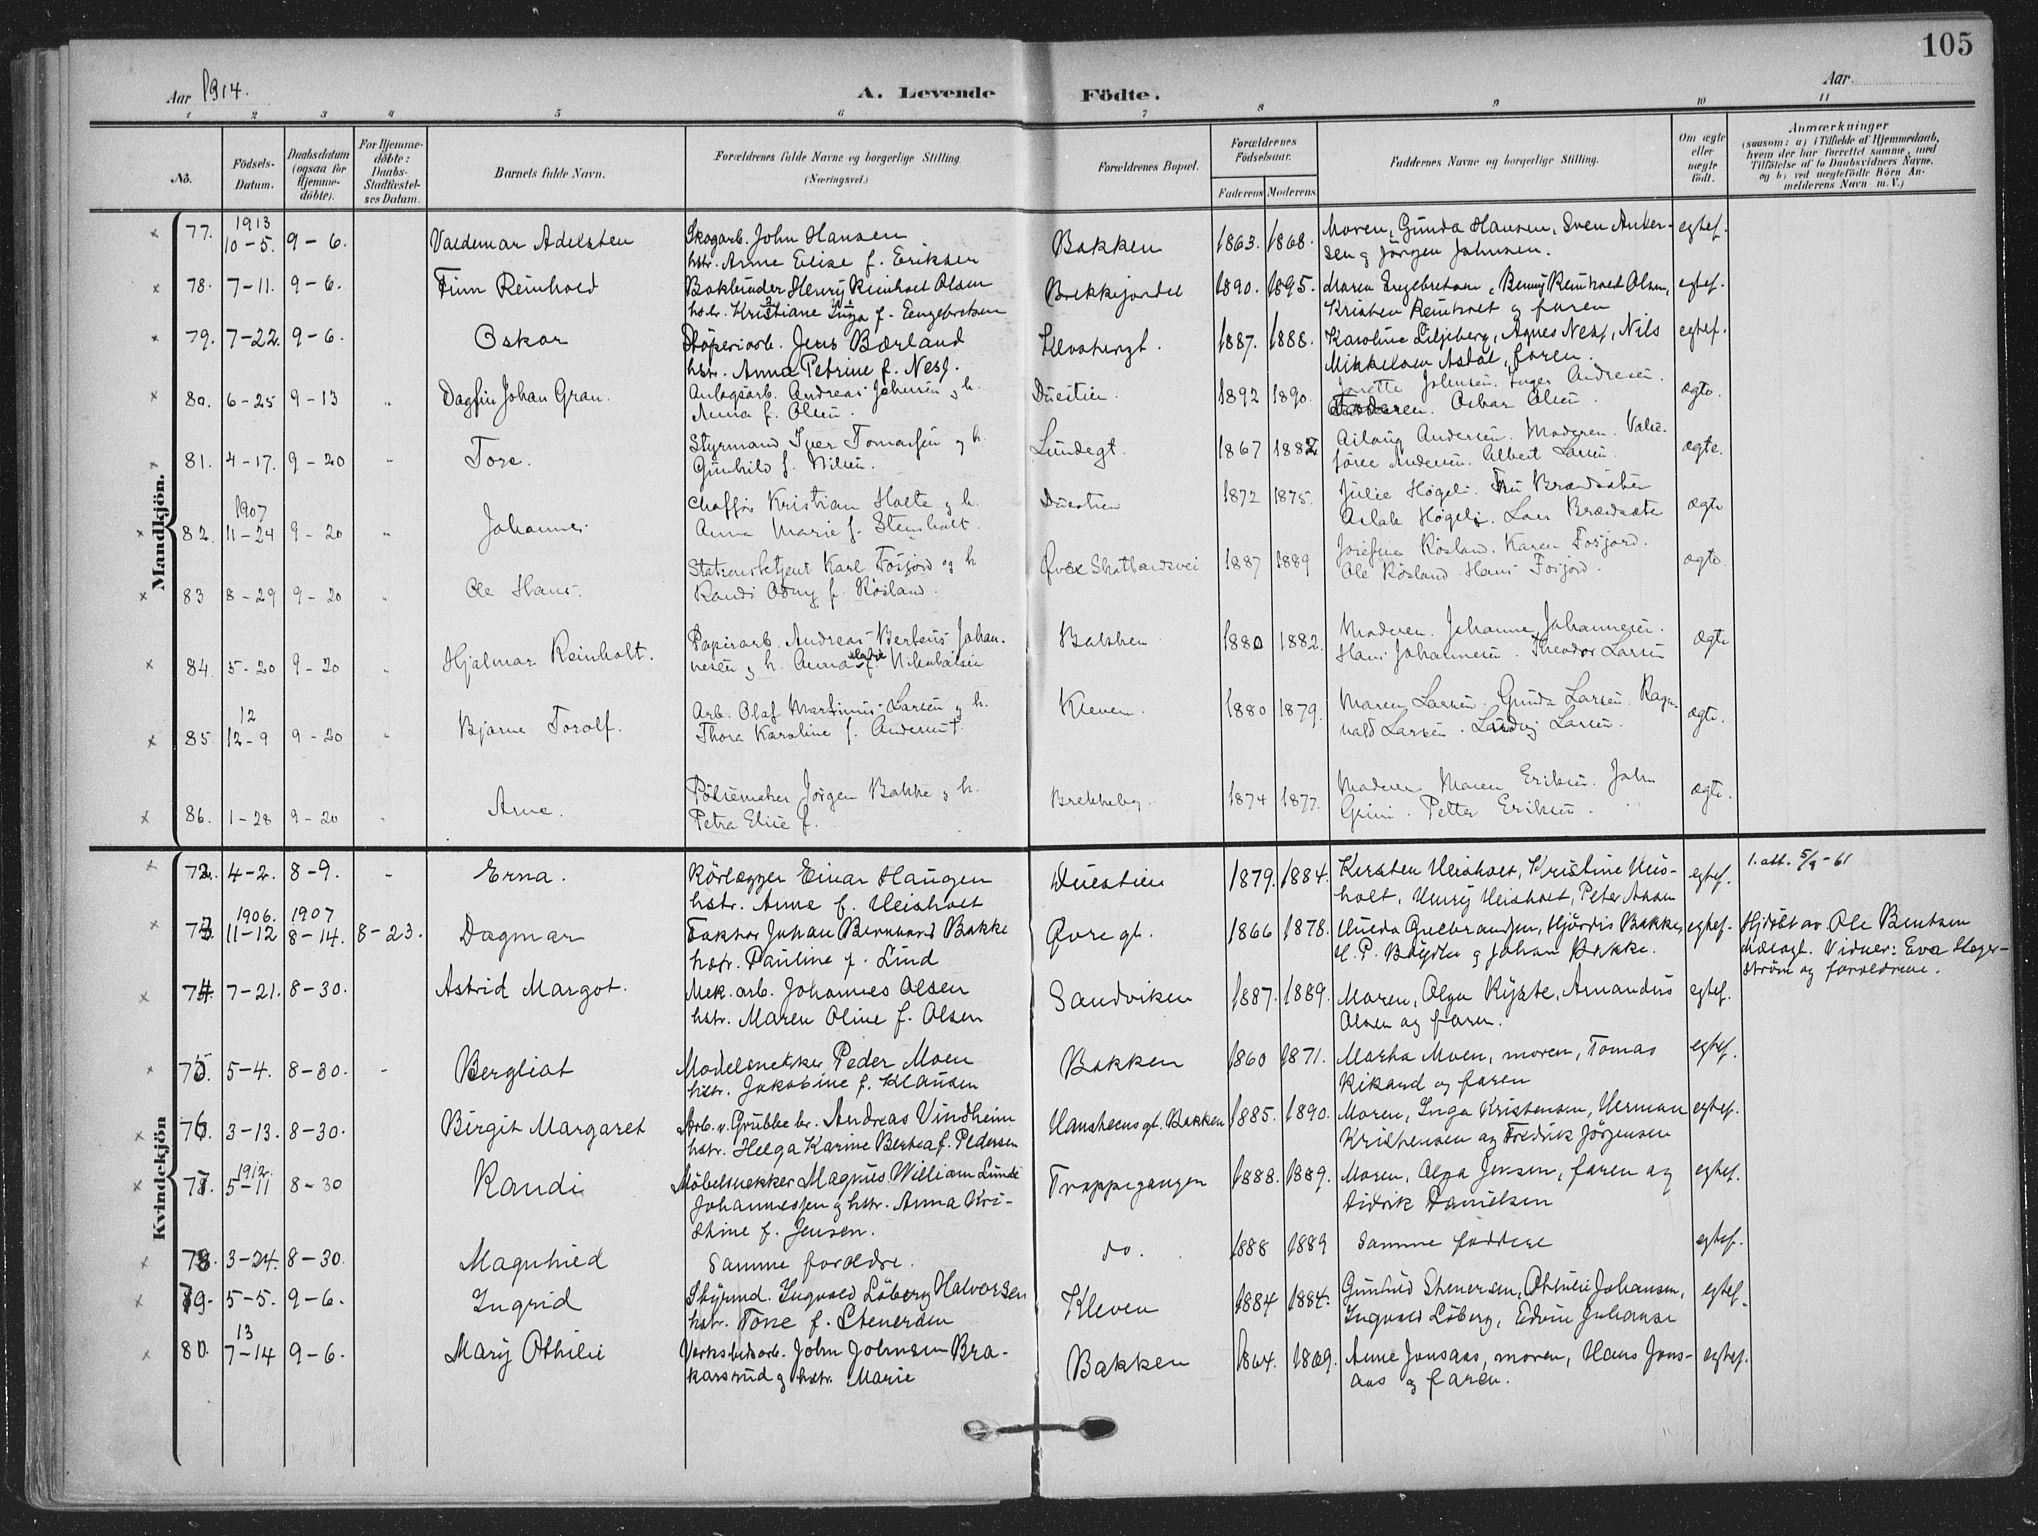 105
Aar 1914.
A. Levende Födte.
Aar
1 2 3 4 5 6 7 8 9 10 11
No.
Födsels-Datum.
Daabsdatum (ogsaa for Hjemme-döbte).
For Hjemme-döbte: Daabs-Stadfæstel-ses Datum.
Barnets fulde Navn.
Forældrenes fulde Navne og borgerlige Stilling. (Næringsvei.)
Forældrenes Bopæl.
Forældrenes Födselsaar.
Faderens Moderens
Faddernes Navne og borgerlige Stilling.
Om ægte eller uægte födt.
Anmærkninger
(saasom: a) i Tilfælde af Hjemmedaab, hvem der har forrettet samme, med Tilföielse af to Daabsvidners Navne, og b) ved uægtefödte Börn An-melderens Navn m. V.)
Mandkjön.
77. 1913 10-5. 9-6. Valdemar Adelsten Skogarb. John Hansen Bakken 1863. 1868. Moren, Gunda Hansen, Sven Anker- egtef.
hstr. Anne Elise f. Eriksen sen og Jörgen Johnsen.
78. 7-11. 9-6. Finn Reinhold Bokbinder Henry Reinholt Olsen Brekkejordet 1890. 1895. Maren Engebretsen, Benny Reinholt Olsen, egtef.
hstr. Kristiane Inga f. Engebretsen Kristen Reinholt og faren
79. 7-22. 9-6. Oskar Støperiarb. Jens Bærland 1887. 1888. Karoline Liljeberg, Agnes Ness, Nils egtef.
hstr. Anna Petrine f. Ness. Mikkelsen Asdal, faren.
80. 6-25 9-13 " Dagfin Johan Gran. Anlagsarb. Andreas Johnsen og h. Duestien. 1892 1890. Johnsen. Inger Andresen. ægte.
Anna f. Olsen. Oskar Olsen.
81. 4-17. 9-20 " Tore. Styrmand Iver Tomassen og h. Lundegt. 1867 1882 Aslaug Andersen. Moderen. ægte.
Gunhild f. Nilsen. Andersen. Albert Larsen.
82. 1907 11-24 9-20 " Johannes Chaffør Kristian Holte og h. Duestien 1872 1875. Julie Høgeli. Fru Brædsæter ægte
Anna Marie f. Stensholt. Aslak Høgeli. Lars Brædsæte
83 8-29 9-20 " Ole Hans. Stationsbetjent Karl Fosjord og h 1887 1889 Josefine Røsland. Karen Fosjord. ægte.
Randi Odny f. Røsland. Ole Røsland Hans Fosjord.
84. 5-20 9-20 " Hjalmar Reinholt. Papirarb. Andreas Bertius Johan- 1880 1882. Moderen. Johanne Johannesen. ægte
nesen og h. Anna f. Nikolaisen Hans Johannesen. Theodor Larsen
85. 12 12-9 9-20 " Bjarne Torolf. Arb. Olaf Martinius Larsen og h. Kleven. 1880 1879. Maren Larsen. Gunda Larsen. Ragn- ægte.
Thora Karoline f. Andersen. vald Larsen. Ludvig Larsen.
86. 1-28 9-20 " Arne. Pølsemaker Jørgen Bakke og h. Brekkeby. 1874 1877. Moderen Maren Eriksen. John ægte.
Petra Elise f. Grini. Petter Eriksen.
Kvindekjön
72. 4-2. 8-9. - Erna. Rörlægger Einar Haugen Duestien 1879. 1884. Kirsten Heisholt, Kristine Heis- egtef. 1. att. 5/9-61
hstr. Anne f. Heisholt holt, Henry Heisholt, Peter
73. 1906. 11-12 1907 8-14. 8-23. Dagmar Faktor Johan Bernhard Bakke Øvregt. 1866 1878. Gulbrandsen, Hjördis Bakke, egtef. Hjdöbt av Ole Bentsen
hstr. Pauline f. Lind H. P. Böyden og Johan Bakke. Vidner: Eva Hager-
ström og forældrene.
74. 7-21. 8-30. Astrid Margot. Mek. arb. Johannes Olsen Sandviken 1887. 1889. Moren, Olga Rykte, Amandus egtef.
hstr. Maren Oline f. Olsen Olsen og faren.
75. 5-4. 8-30. - Bergliot Modelsnekker Peder Moen Bakken 1860 1871. Martha Moen, moren, Tomas egtef.
hstr. Jakobine f. Klausen Rikard og faren
76. 3-13. 8-30. Birgit Margaret Arb. v. Grubbe br. Andreas Vindheim Hansteensgt. Bakken 1885. 1890. Moren, Inga Kristensen, Herman egtef.
hstr. Helga Karine Bertea f. Pedersen Kristensen og Fredrik Jörgensen
77. 1912. 5-11 8-30 Randi Möbelsnekker Magnus William Lunde Trappegangen 1888. 1889. Moren, Olga Jensen, faren og egtef.
Johannessen og hstr. Anna Kri- Didrik Danielsen
stine f. Jensen.
78. 3-24. 8-30. Magnhild Samme forældre. do. 1888 1889 Samme faddere egtef.
79. 5-5. 9-6. Ingrid Styrmd. Ingvald Löberg Halvorsen Kleven 1884 1884. Gunhild Stenersen, Othilie Johansen, egtef.
hstr. Tone f. Stenersen Ingvald Löberg, Edvin Johansen
80. 13 7-14 9-6. Mary Othilie Verkstedsarb. John Johnsen Bra- Bakken 1864. 1869. Anne Jonsaas, moren, Hans Jons- egtef.
karsrud og hstr. Marie aas og faren.